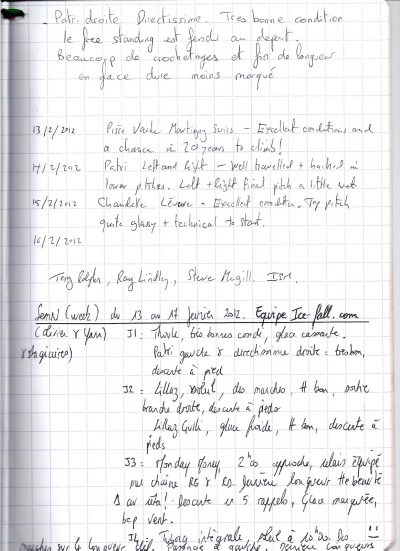 - Patri droite Directissime. Tres bonne condition
le free standing est fendu au depart.
Beaucoup de crochetages et fin de longueur
en glace dure moins marqué
13/2/2012 Pisse Vache Martigny Suiss - Excellent conditions and
a chance in 20 years to climb!
14/2/2012 Patri Left and Right - Well travelled + hacked in
lower pitches. Left + Right final pitch a little wet
15/2/2012 Chandelle Lévure - Excellent condition. Top pitch
quite glassy + technical to start.
16/2/2012
Terry Ralphs, Ray Lindley, Steve Mugill. ISM.
SemN (week) du 13 au 17 fevrier 2012. Equipe Ice-fall.com
(Olivier & Yann) J1: Thuile, très bonnes condi, glace cassante.
& stagiaires) Patri gauche & directissime droite: tres bon,
descente à pied
J2 = Lillaz, soleil, des marches, bon, sortie
branche droite, descente à pieds
Lillaz Gulli, glace froide, bon, descente à
pieds
J3 = Monday Money, 2h00 approche, relais équipé
par chaine RG & RD. dernière longueur beauté
1 av rêta! Descente en 5 rappels, Glace marquée,
bcp vent.
J4 = Tuborg intégrale, plué à 10h00 les
sur le longueur clef. Passage à gauche. Dernière longueurs